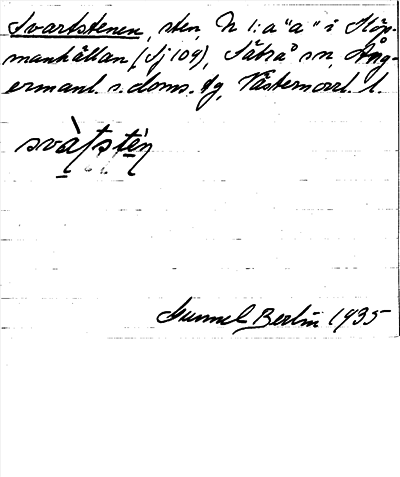 Svartstenen, sten, N 1:a "a" i Köp-
manhällan (Sj 109), Sätra sn, Ång-
ermanl. s. doms. dg, Västernorrl. l.
svàʈʂtén
Gunnel Berlin 1935